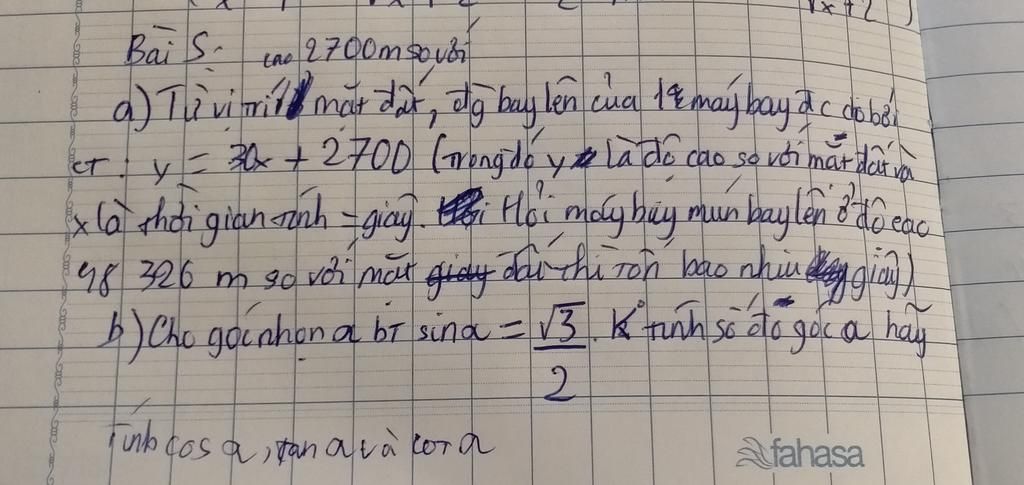 Bài 5:
cao 2700m so với
a) Từ vị trí mặt đất, đg bay lên của 1 máy bay đc cho bởi
CT: y = 30x + 2700 (trong đó y là độ cao so với mặt đất và
x là thời gian tính = giây. Hỏi máy bay mún bay lên ở độ cao
48 326 m so với mặt đất thì tốn bao nhiu giây)
b) Cho góc nhọn a bt sin a = √3/2. K tính số đo góc a hãy
Tính cos a, tan a và cot a
fahasa